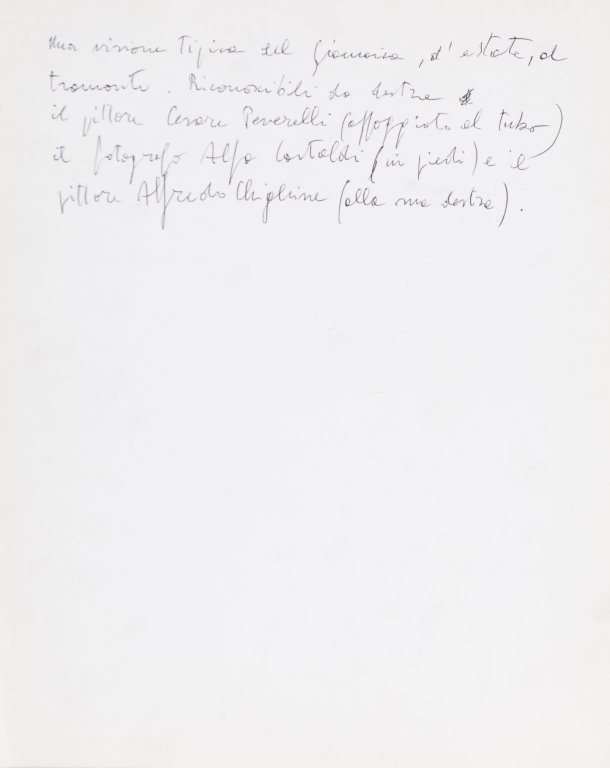 Una visione tipica del Giamaica, d'estate, al
tramonto. Riconoscibili da destra
il pittore Cesare Peverelli (appoggiato al tubo)
il fotografo Alfa Castaldi (in piedi) e il
pittore Alfredo Chighine (alla sua destra).